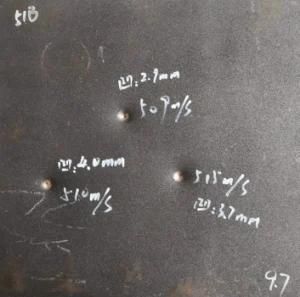 51B
凹:2.9mm
509m/s
凹:4.0mm
510m/s
515m/s
凹:3.7mm
9.7